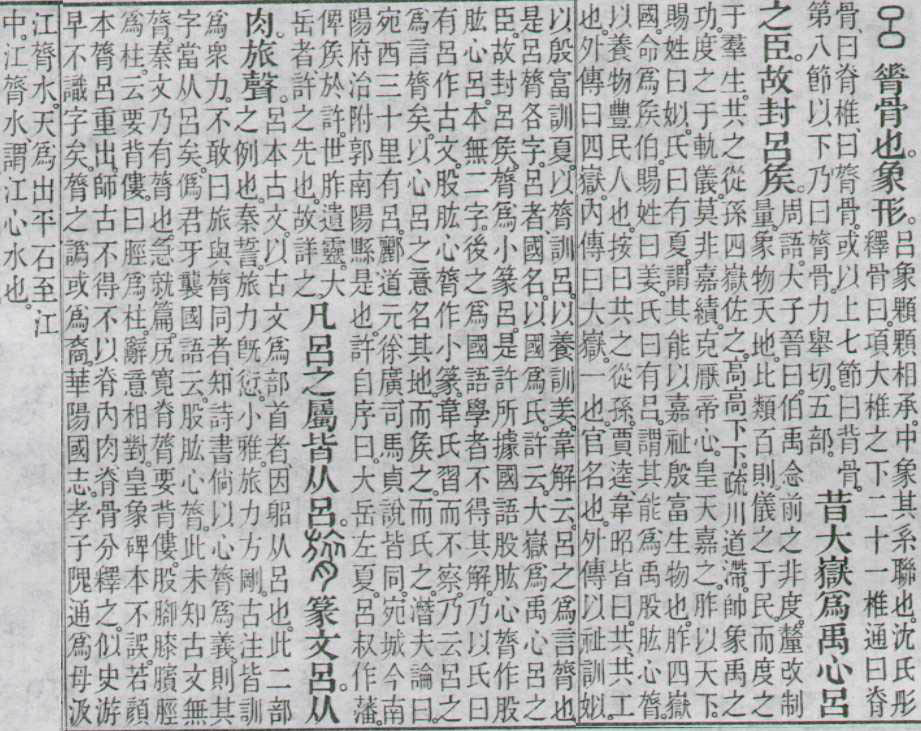 脊骨也。象形。
呂象顆顆相承。中象其系聯也。沈氏彤
釋骨曰。項大椎之下二十一椎通曰脊
骨。曰脊椎。曰膂骨。或以上七節曰背骨。
第八節以下乃曰膂骨。力舉切。五部。
昔大嶽爲禹心呂
之臣。故封呂矦。
周語。大子晉曰。伯禹念前之非度。釐改制
量。象物天地。比類百則。儀之于民。而度之
于羣生。共之從孫四嶽佐之。高高下下。疏川道滯。帥象禹之
功。度之于軌儀。莫非嘉績。克厭帝心。皇天嘉之。胙以天下。
賜姓曰姒。氏曰有夏。謂其能以嘉祉殷富生物也。胙四嶽
國。命爲矦伯。賜姓曰姜。氏曰有呂。謂其能爲禹股肱心膂。
以養物豐民人也。按曰共之從孫。賈逵韋昭皆曰共。共工
也。外傳曰四嶽。內傳曰大嶽。一也。官名也。外傳以祉訓姒。
以殷富訓夏。以膂訓呂。以養訓姜。韋解云。呂之爲言膂也
是呂膂各字。呂者國名。以國爲氏。許云。大嶽爲禹心呂之
臣。故封呂矦。膂爲小篆。呂是許所據國語股肱心膂作股
肱心呂。本無二字。後之爲國語學者不得其解。乃以氏曰
有呂作古文。股肱心膂作小篆。韋氏習而不察。乃云呂之
爲言膂矣。以心呂之意名其地而矦之而氏之。潛夫論曰。
宛西三十里有呂。酈道元徐廣司馬貞說皆同。宛城今南
陽府治附郭南陽縣是也。許自序曰。大岳左夏。呂叔作藩。
俾矦於許。世胙遺靈。大
岳者許之先也。故詳之。
凡呂之屬皆从呂。篆文呂。从
肉旅聲。
呂本古文。以古文爲部首者。因躳从呂也。此二部
之例也。秦誓。旅力旣愆。小雅。旅力方剛。古注皆訓
爲衆力。不敢曰旅與膂同者。知詩書倘以心膂爲義。則其
字當从呂矣。僞君牙襲國語云。股肱心膂。此未知古文無
膂。秦文乃有膂也。急就篇。尻寬脊膂要背僂。股腳膝臏脛
爲柱。云要背僂。曰脛爲柱。辭意相對。皇象碑本不誤。若顏
本膂呂重出。師古不得不以脊內肉脊骨分釋之。似史游
早不識字矣。膂之譌或爲裔。華陽國志。孝子隗通爲母汲
江膂水。天爲出平石至江
中。江膂水謂江心水也。